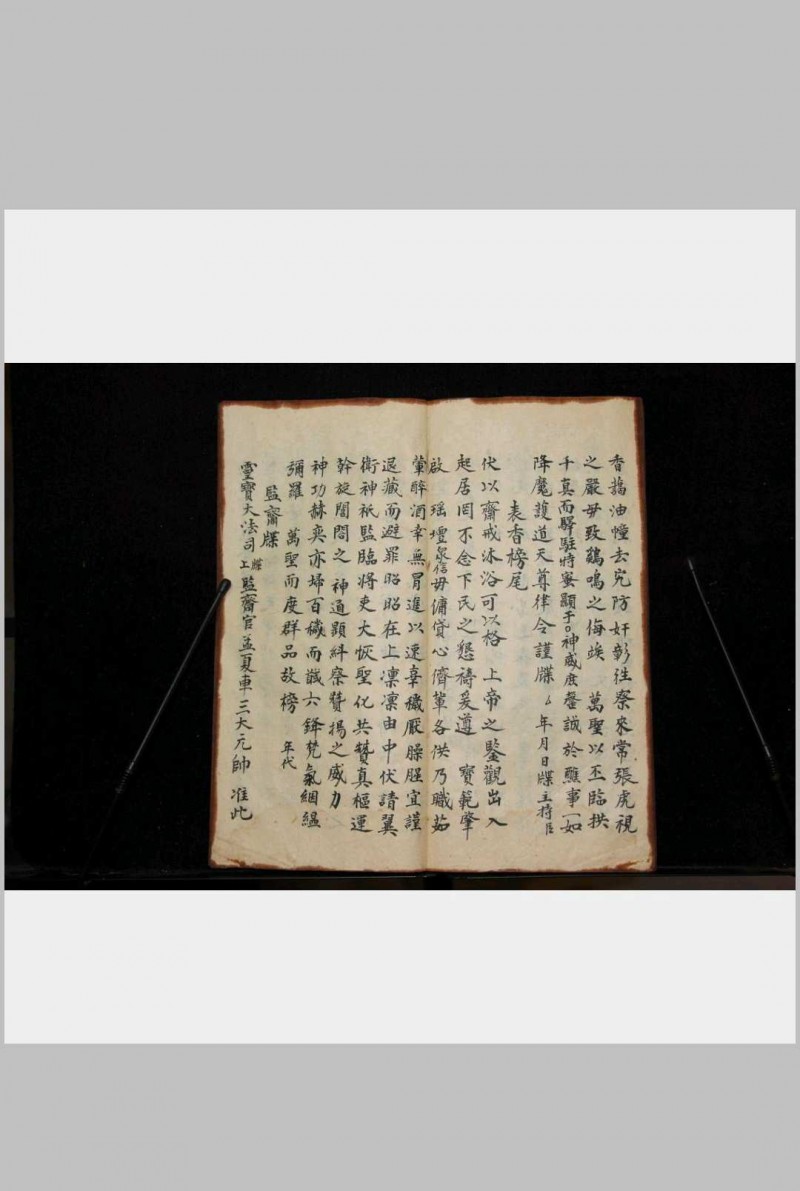 香謁油幢去宄防奸彰往察來常張虎視
之嚴毋致鷸鳴之侮竢 萬聖以丕臨拱
千真而驛駐特蜜顯于○神威庶罄誠於醮事一如
降魔護道天尊律令謹牒 年月日牒主持
表香榜尾
伏以齋戒沐浴可以格 上帝之鑒觀出入
起居罔不念下民之懇禱爰遵 寳範肇
啟 瑶壇衆信毋傭貸心儕輩各供乃職茹
葷醉酒幸無冐進以速辜穢厭臊腥宜謹
退藏而避罪昭昭在上凛凛由中伏請翼
衛神祇監臨將吏大恢聖化共贊真樞運
幹旋闔闢之 神通顯糾察贊揚之威力
神功赫奕亦埽百穢而 六 梵氣絪緼
彌羅 萬聖而度群品故榜 年代
監齋牒
靈寳大法司 牒上 監齋官孟夏車三大元帥 准此